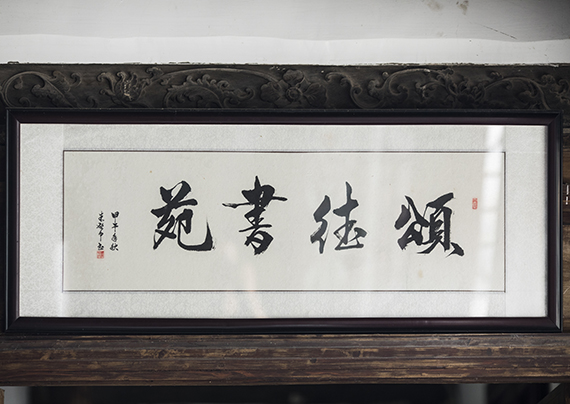 頌德書苑
甲午年秋